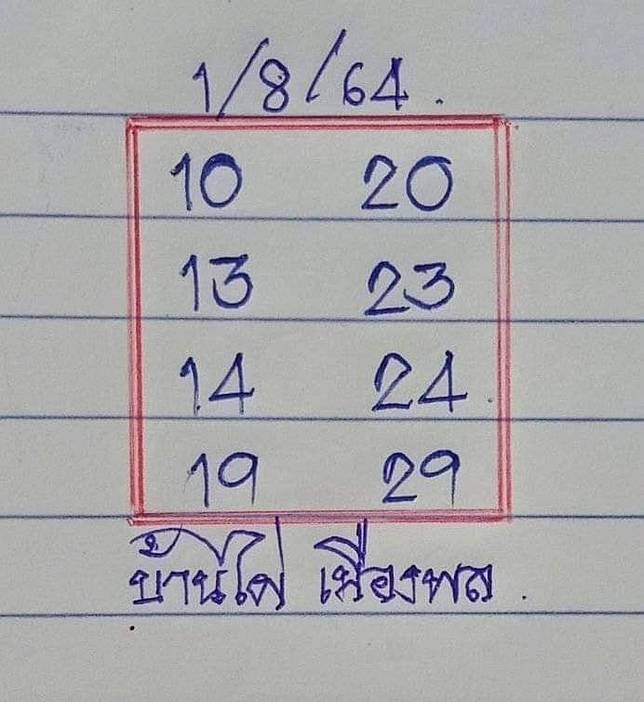 1/8/64.
10 20
13 23
14 24
19 29
บ้านไผ่ เมืองพล